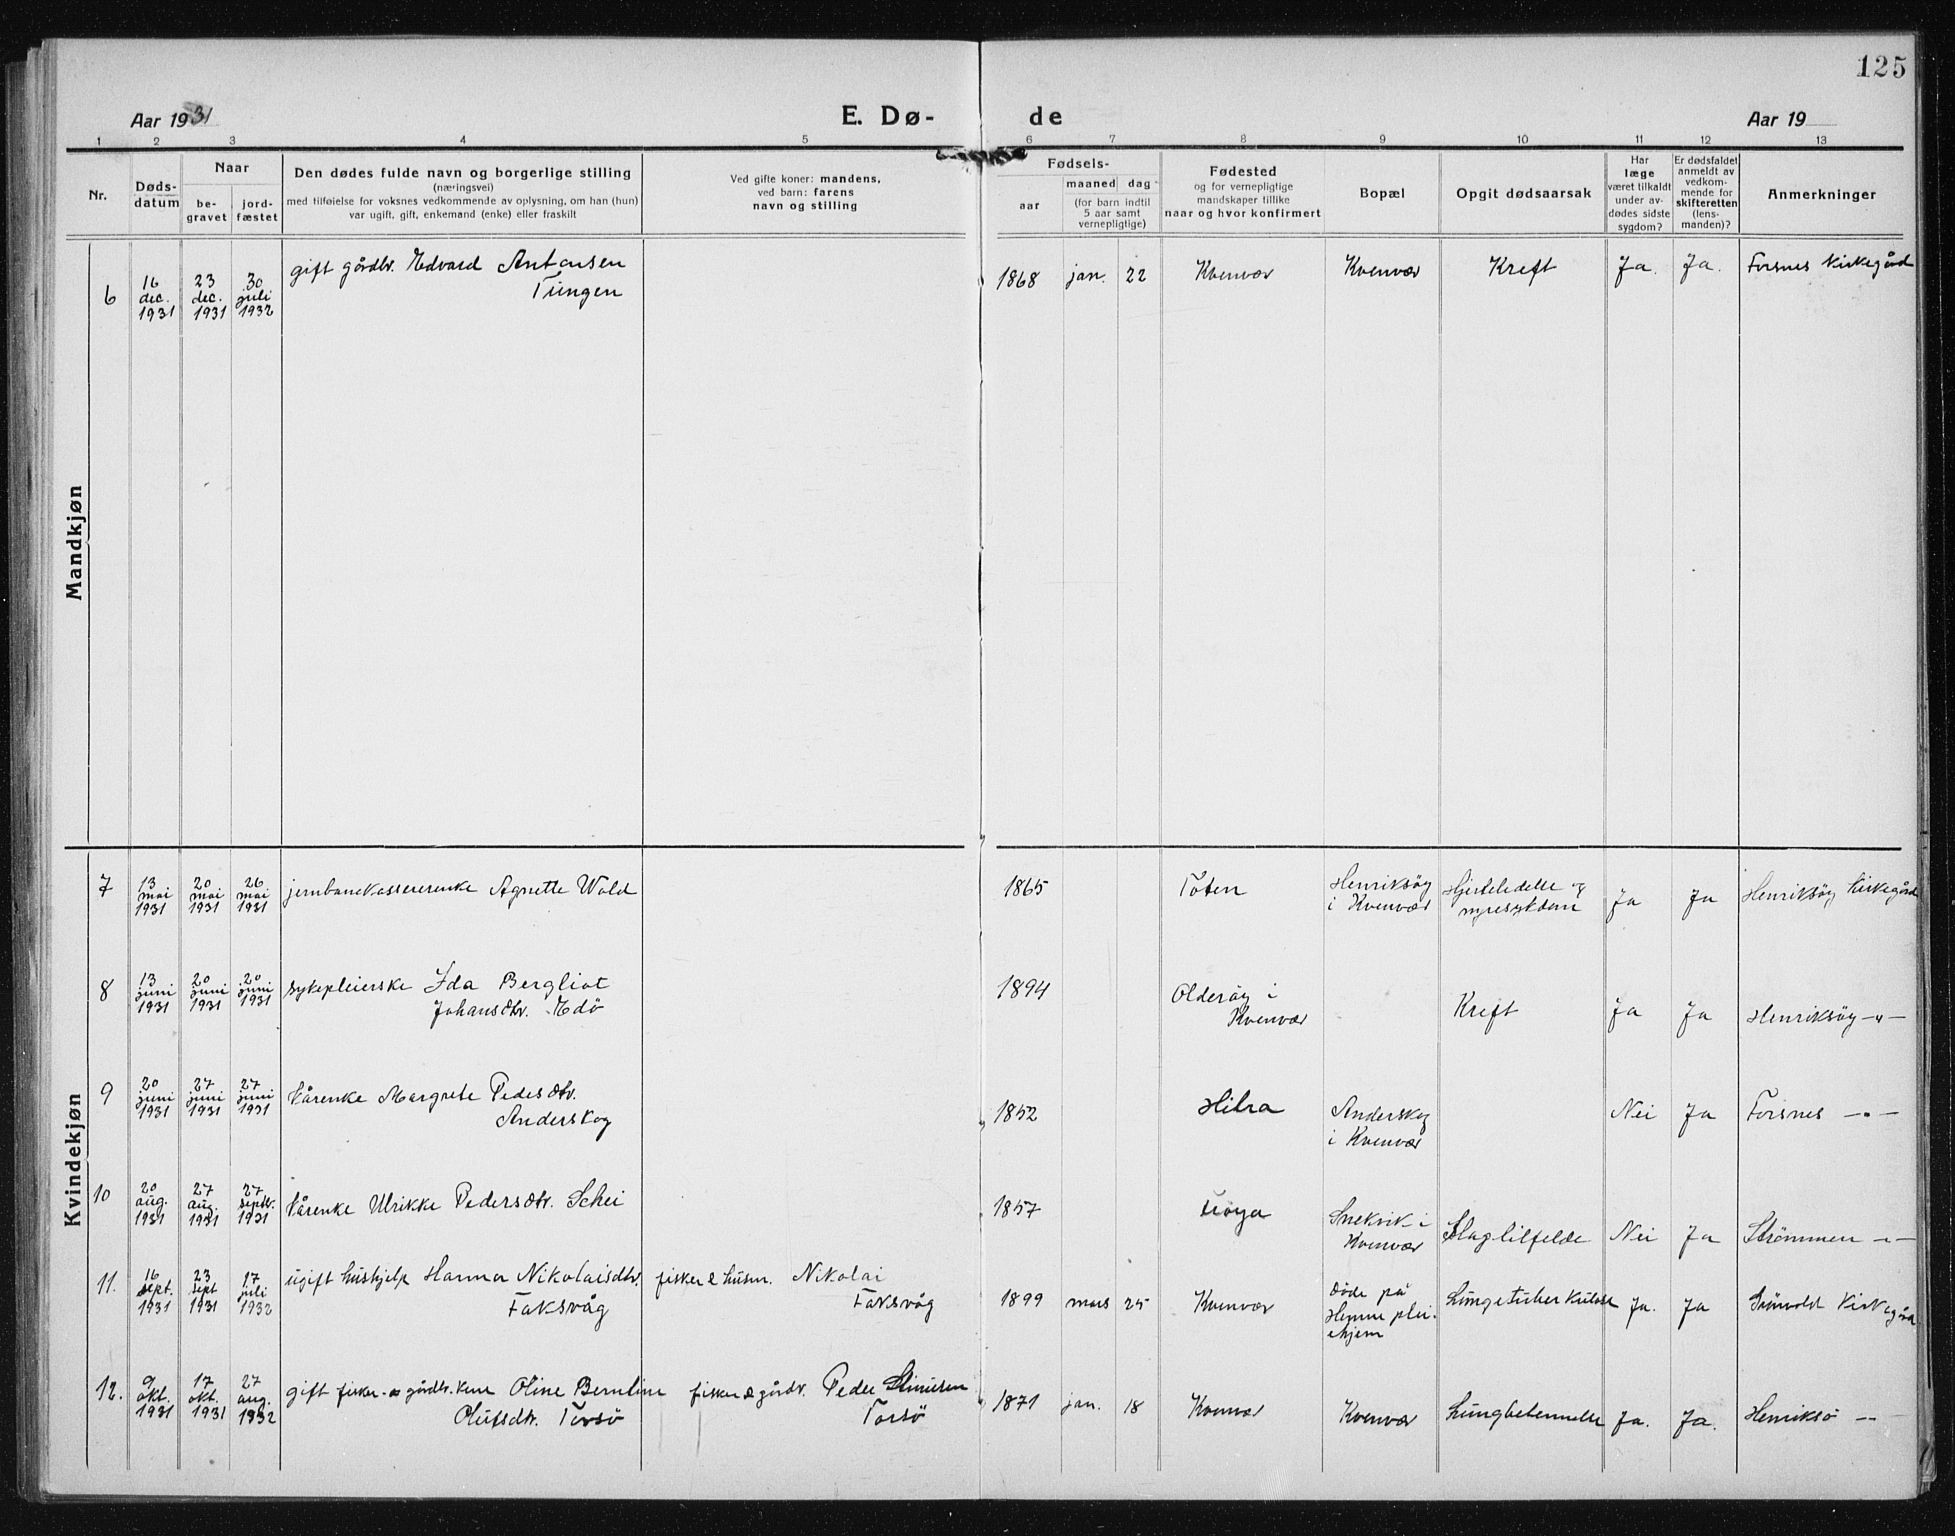 125
Aar 1931
E. Dø-
de
Aar 19
1 2 3 4 5 6 7 8 9 10 11 12 13
Nr.
Døds-
datum
Naar
be-
gravet
jord-
fæstet
Den dødes fulde navn og borgerlige stilling
(næringsvei)
med tilføielse for voksnes vedkommende av oplysning, om han (hun)
var ugift, gift, enkemand (enke) eller fraskilt
Ved gifte koner: mandens,
ved barn: farens
navn og stilling
Fødsels-
aar
maaned
dag
(for barn indtil
5 aar samt
vernepligtige)
Fødested
og for vernepligtige
mandskaper tillike
naar og hvor konfirmert
Bopæl
Opgit dødsaarsak
Har
læge
været tilkaldt
under av-
dødes sidste
sygdom?
Er dødsfaldet
anmeldt av
vedkom-
mende for
skifteretten
(lens-
manden)?
Anmerkninger
Mandkjøn
6
16
dec.
1931
23
dec.
1931
30
juli
1932
gift gårdbr. Edvard Antonsen
Tungen
1868
jan.
22
Kvenvær
Kvenvær
Kreft
Ja.
Ja.
Forsnes Kirkegård
Kvindekjøn
7
13
mai
1931
20
mai
1931
26
mai
1931
jernbanekassererenke Agnette Wold
1865
Toten
Henriksøy
i Kvenvær
Hjertelidelse og
nyresykdom
Ja
Ja
Henriksøy Kirkegård
8
13
juni
1931
20
juni
1931
20
juni
1931
sykepleierske Ida Bergliot
Johansdtr. Edø
1894
Olderøy i
Kvenvær
Kreft
Ja
Ja
Henriksøy -"-
9
20
juni
1931
27
juni
1931
27
juni
1931
kårenke Margrete Pedersdtr.
Anderskog
1852
Hitra
Anderskog
i Kvenvær
Nei
Ja
Forsnes -"-
10
20
aug.
1931
27
aug.
1931
27
septbr.
1931
kårenke Ulrikke Pedersdtr. Schei
1857
Frøya
Snekvik i
Kvenvær
Slagtilfelde
Nei
Ja
Strømmen -"-
11.
16
sept.
1931
23
sept
1931
17
juli
1932
ugift hushjelp Hanna Nikolaisdtr.
Faksvåg
fisker & husm. Nikolai
Faksvåg
1899
mars
25
Kvenvær
Døde på
Hemne plei-
ehjem
Lungetuberkulose
Ja.
Ja
Kirkegård
12.
9
okt.
1931
17
okt.
1931
27
aug.
1932
gift fisker- og gårdbr. kone Oline Berntine
Olufsdtr. Torsø
fisker & gårdbr. Peder
Torsø
1871
jan.
18
Kvenvær
Kvenvær
Lungbetennelse
Ja.
Ja.
Henriksø -"-